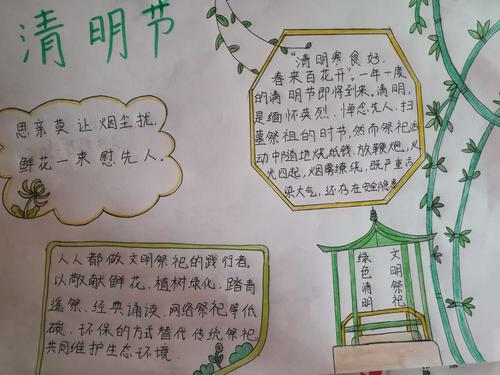 清明节
思亲莫让烟尘扰,
鲜花一束慰先人.
“清明寒食好,
春来百花开”。一年一度
的清明节即将到来。清明,
是缅怀英烈、悼念先人、扫
墓祭祖的时节,然而祭祀活
动中随地烧纸钱、放鞭炮。火
光四起,烟雾缭绕,既严重污
染大气,还存在安全隐患
人人都做文明祭祀的践行者。
以敬献鲜花、植树绿化,踏青
遥祭、经典诵读、网络祭祀等低
碳、环保的方式替代传统祭祀.
共同维护生态环境.
文明祭祀
绿色清明